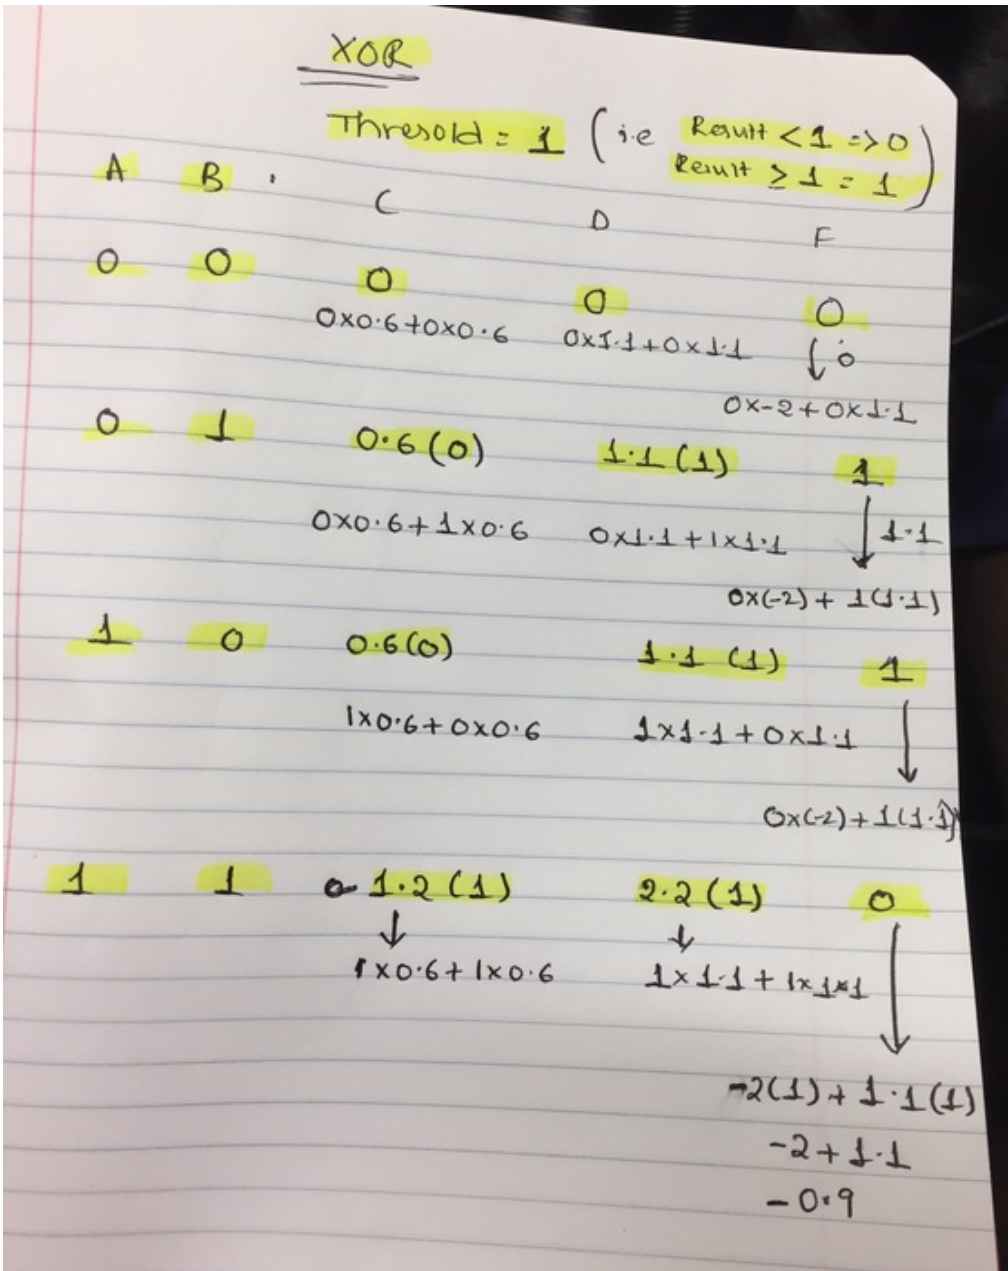 XOR
Thresold = 1 ( i.e Result < 1 => 0
Result ≥ 1 = 1 )
A B . C D F
0 0 0 0 0
0x0.6+0x0.6 0x1.1+0x1.1 ↓ 0
0x-2+0x1.1
0 1 0.6(0) 1.1(1) 1
0x0.6+1x0.6 0x1.1+1x1.1 ↓ 1.1
0x(-2) + 1(1.1)
1 0 0.6(0) 1.1 (1) 1
1x0.6+0x0.6 1x1.1+0x1.1 ↓
0x(-2)+1(1.1)
1 1 1.2(1) 2.2(1) 0
↓ ↓ ↓
1x0.6+1x0.6 1x1.1+1x1.1
-2(1)+1.1(1)
-2+1.1
-0.9